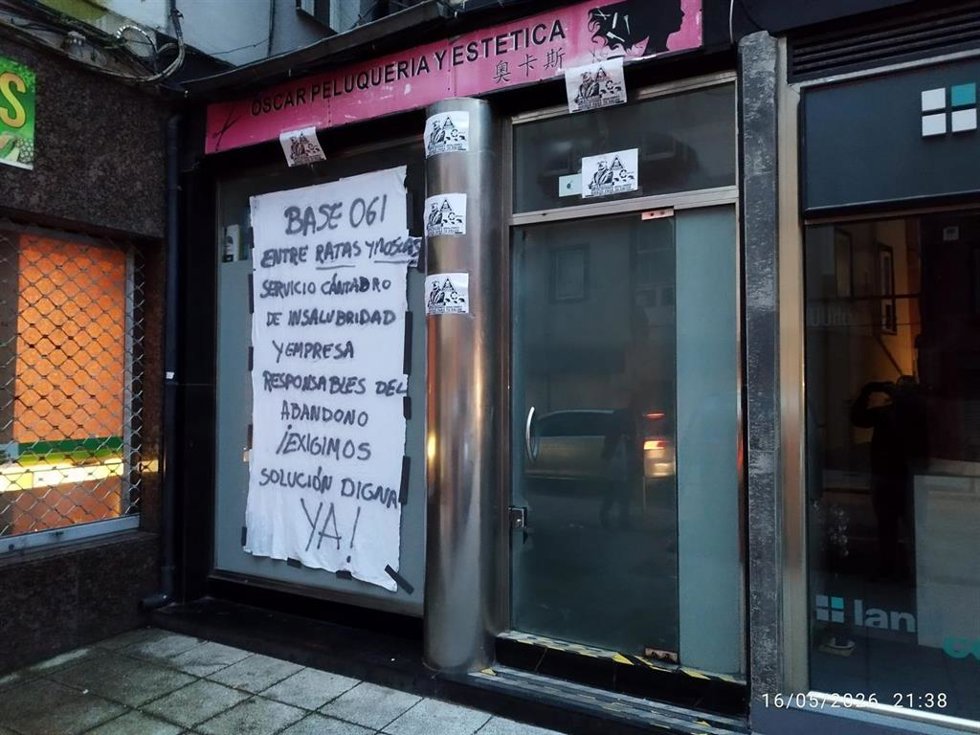 OSCAR PELUQUERIA Y ESTETICA
奥卡斯
S
BASE 061
ENTRE RATAS Y MOSCAS
SERVICIO CÁNTABRO
DE INSALUBRIDAD
Y EMPRESA
RESPONSABLES DEL
ABANDONO
¡EXIGIMOS
SOLUCIÓN DIGNA
YA!
lan
16/05/2026 21:38